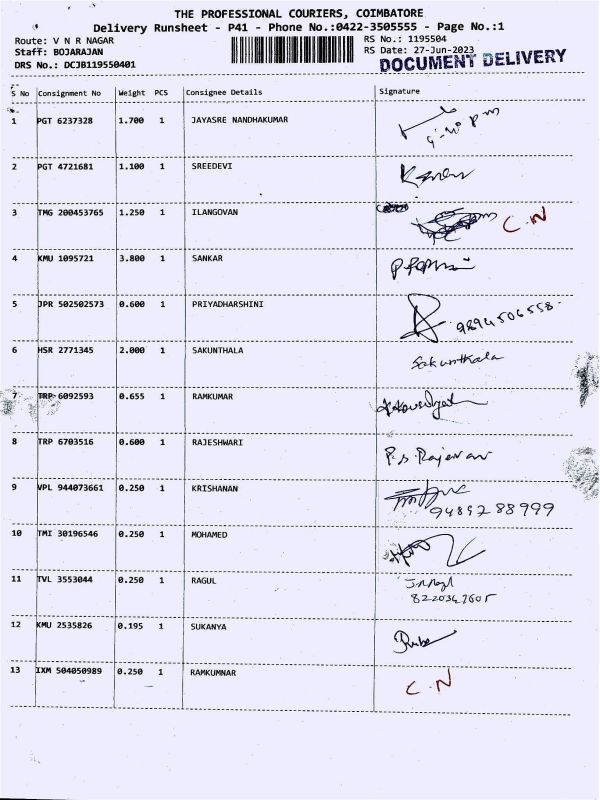 THE PROFESSIONAL COURIERS, COIMBATORE
Delivery Runsheet - P41 - Phone No.:0422-3505555 - Page No.:1
Route: V N R NAGAR RS No.: 1195504
Staff: BOJARAJAN RS Date: 27-Jun-2023
DRS No.: DCJB119550401 DOCUMENT DELIVERY
S No Consignment No Weight PCS Consignee Details Signature
1 PGT 6237328 1.700 1 JAYASRE NANDHAKUMAR
2 PGT 4721681 1.100 1 SREEDEVI
3 TMG 200453765 1.250 1 ILANGOVAN C.N
4 KMU 1095721 3.800 1 SANKAR
5 JPR 502502573 0.600 1 PRIYADHARSHINI 9894506558
6 HSR 2771345 2.000 1 SAKUNTHALA Sakunthala
7 TRP 6092593 0.655 1 RAMKUMAR
8 TRP 6703516 0.600 1 RAJESHWARI
9 VPL 944073661 0.250 1 KRISHANAN
9489288999
10 TMI 30196546 0.250 1 MOHAMED
11 TVL 3553044 0.250 1 RAGUL
8220347605
12 KMU 2535826 0.195 1 SUKANYA
13 IXM 504050989 0.250 1 RAMKUMNAR C.N